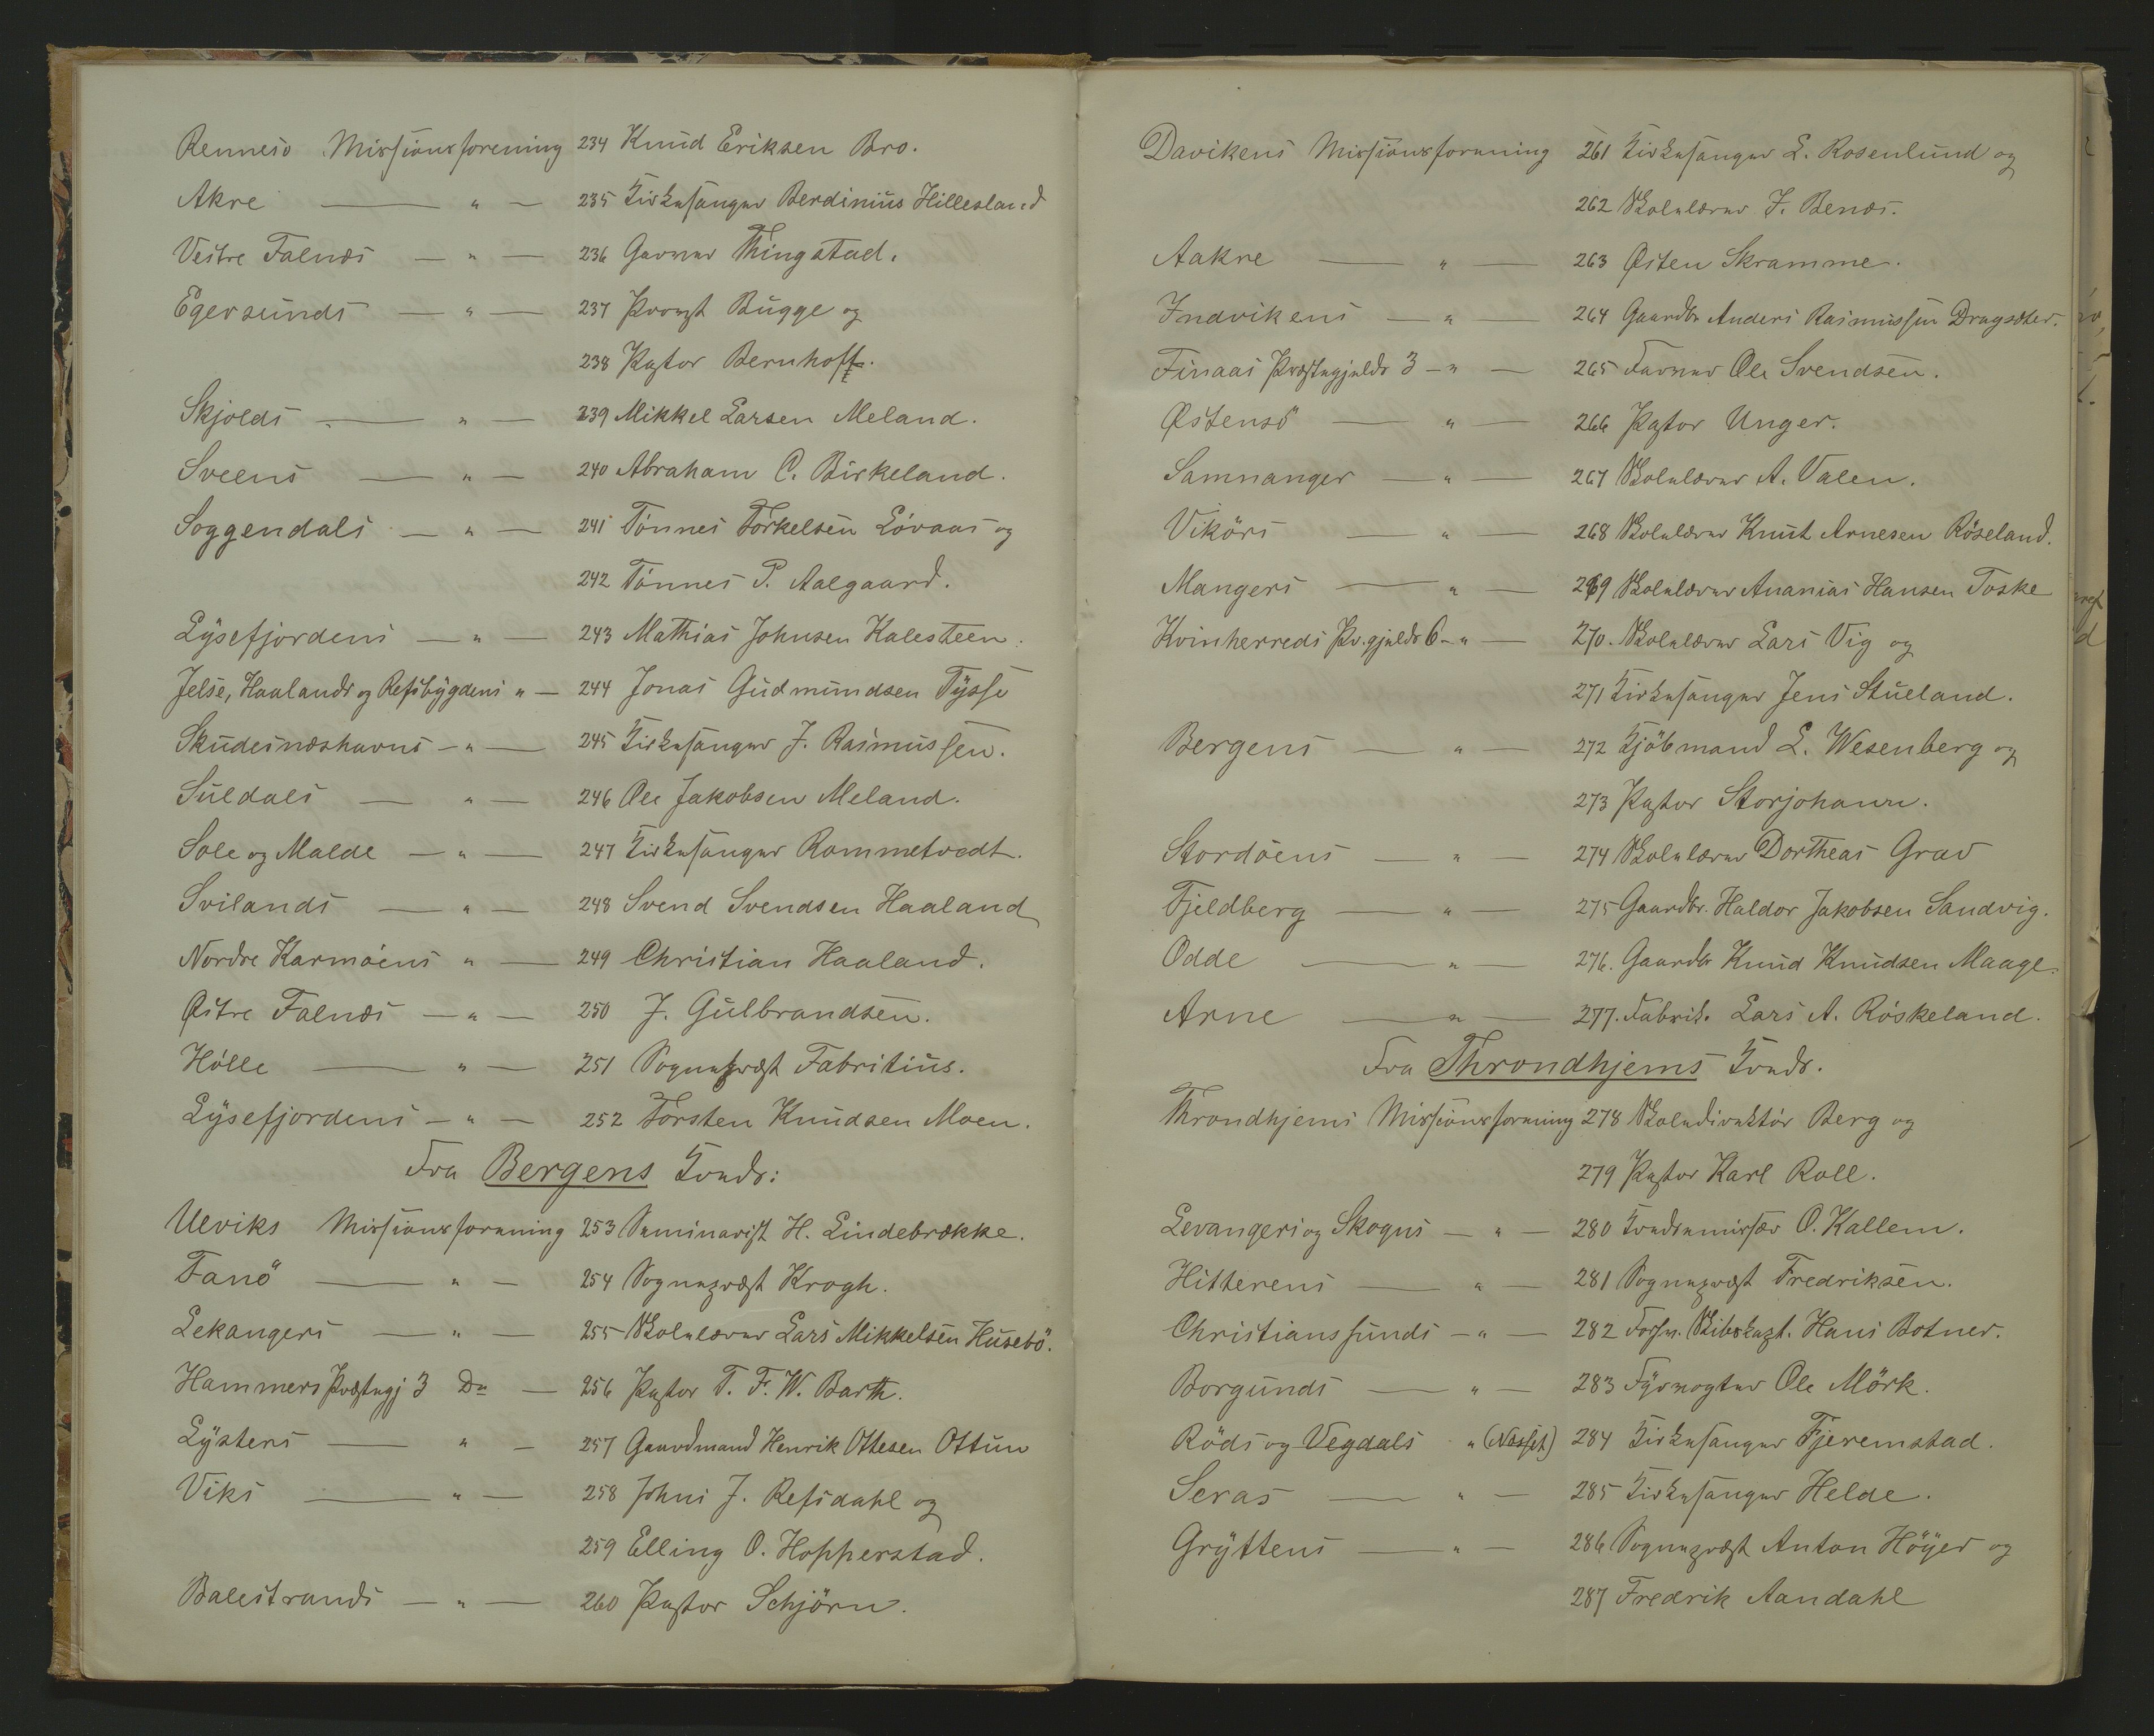 Rennesö Missionsforening 234 Knud Eriksen Bro.
Akre — " — 235 Kirkesanger Berdinius Hillesland
Vestre Falnæs — " — 236 Garver Thingstad.
Egersunds — " — 237 Provst Bugge og
238 Pastor Bernhoft.
Skjolds — " — 239 Mikkel Larsen Meland.
Sveens — " — 240 Abraham C. Birkeland.
Soggendals — " — 241 Tönnes Torkelsen Lövaas og
242 Tönnes P. Aalgaard.
Lysefjordens — " — 243 Mathias Johnsen Kalesteen.
Jelse, Haalands og Refsbygdens " — 244 Jonas Gudmundsen Tysse
Skudesnæshavns — " — 245 Kirkesanger J. Rasmussen.
Suldals — " — 246 Ole Jakobsen Meland.
Sole og Malde — " — 247 Kirkesanger Rommetvedt.
Svilands — " — 248 Svend Svendsen Haaland
Nordre Karmöens " — 249 Christian Haaland.
Östre Falnæs — " — 250 J. Gulbrandsen.
Hölle — " — 251 Sogneprest Fabritius.
Lysefjordens — " — 252 Torsten Knudsen Moen.
Fra Bergens Kreds:
Ulviks Missionsforening 253 Seminarist H. Lindebrække.
Fanö — " — 254 Sogneprest Krogh.
Lekangers — " — 255 Skolelærer Lars Mikkelsen Husebö.
Hammers Præstegj 3 Do — 256 Pastor T. F. W. Barth.
Lysters — " — 257 Gaardmand Henrik Ottesen Ottun
Viks — " — 258 Johns J. Refsdahl og
259 Elling O. Hopperstad.
Balestrands — " — 260 Pastor Schjörn.
Davikens Missionsforening 261 Kirkesanger L. Rosenlund og
262 Skolelærer J. Benæs.
Aakre — " — 263 Östen Skramme.
Indvikens — " — 264 Gaardbr Anders Rasmussen Dragsæter.
Finaas Præstegjelds 3 — " — 265 Farver Ole Svendsen.
Östensö — " — 266 Pastor Unger.
Samnanger — " — 267 Skolelærer A. Valen.
Vikörs — " — 268 Skolelærer Knut Arnesen Röseland.
Mangers — " — 269 Skolelærer Ananias Hansen Toske
Kvinherreds Pr.gjelds 6 — " — 270. Skolelærer Lars Vig og
271 Kirkesanger Jens Stueland.
Bergens — " — 272 Kjöbmand L. Wesenberg og
273 Pastor Storjohann.
Stordöens — " — 274 Skolelærer Dortheas Grav
Fjeldberg — " — 275 Gaardbr. Haldor Jakobsen Sandvig.
Odde — " — 276. Gaardbr Knud Knudsen Maage.
Arne — " — 277. Fabrik. Lars A. Röskeland.
Fra Throndhjems Kreds.
Throndhjems Missionsforening 278 Skoledirektör Berg og
279 Pastor Karl Roll.
Levangers og Skogns — " — 280 Kredsemissær O. Kallem.
Hitterens — " — 281 Sogneprest Fredriksen.
Christianssunds — " — 282 Forhv. Skibskapt. Hans Botner.
Borgunds — " — 283 Fyrvogter Ole Mörk.
Röds og Vegdals " (Nesset) 284 Kirkesanger Fjeremstad.
Seras — " — 285 Kirkesanger Helde.
Gryttens — " — 286 Sogneprest Anton Höyer og
287 Fredrik Aandahl